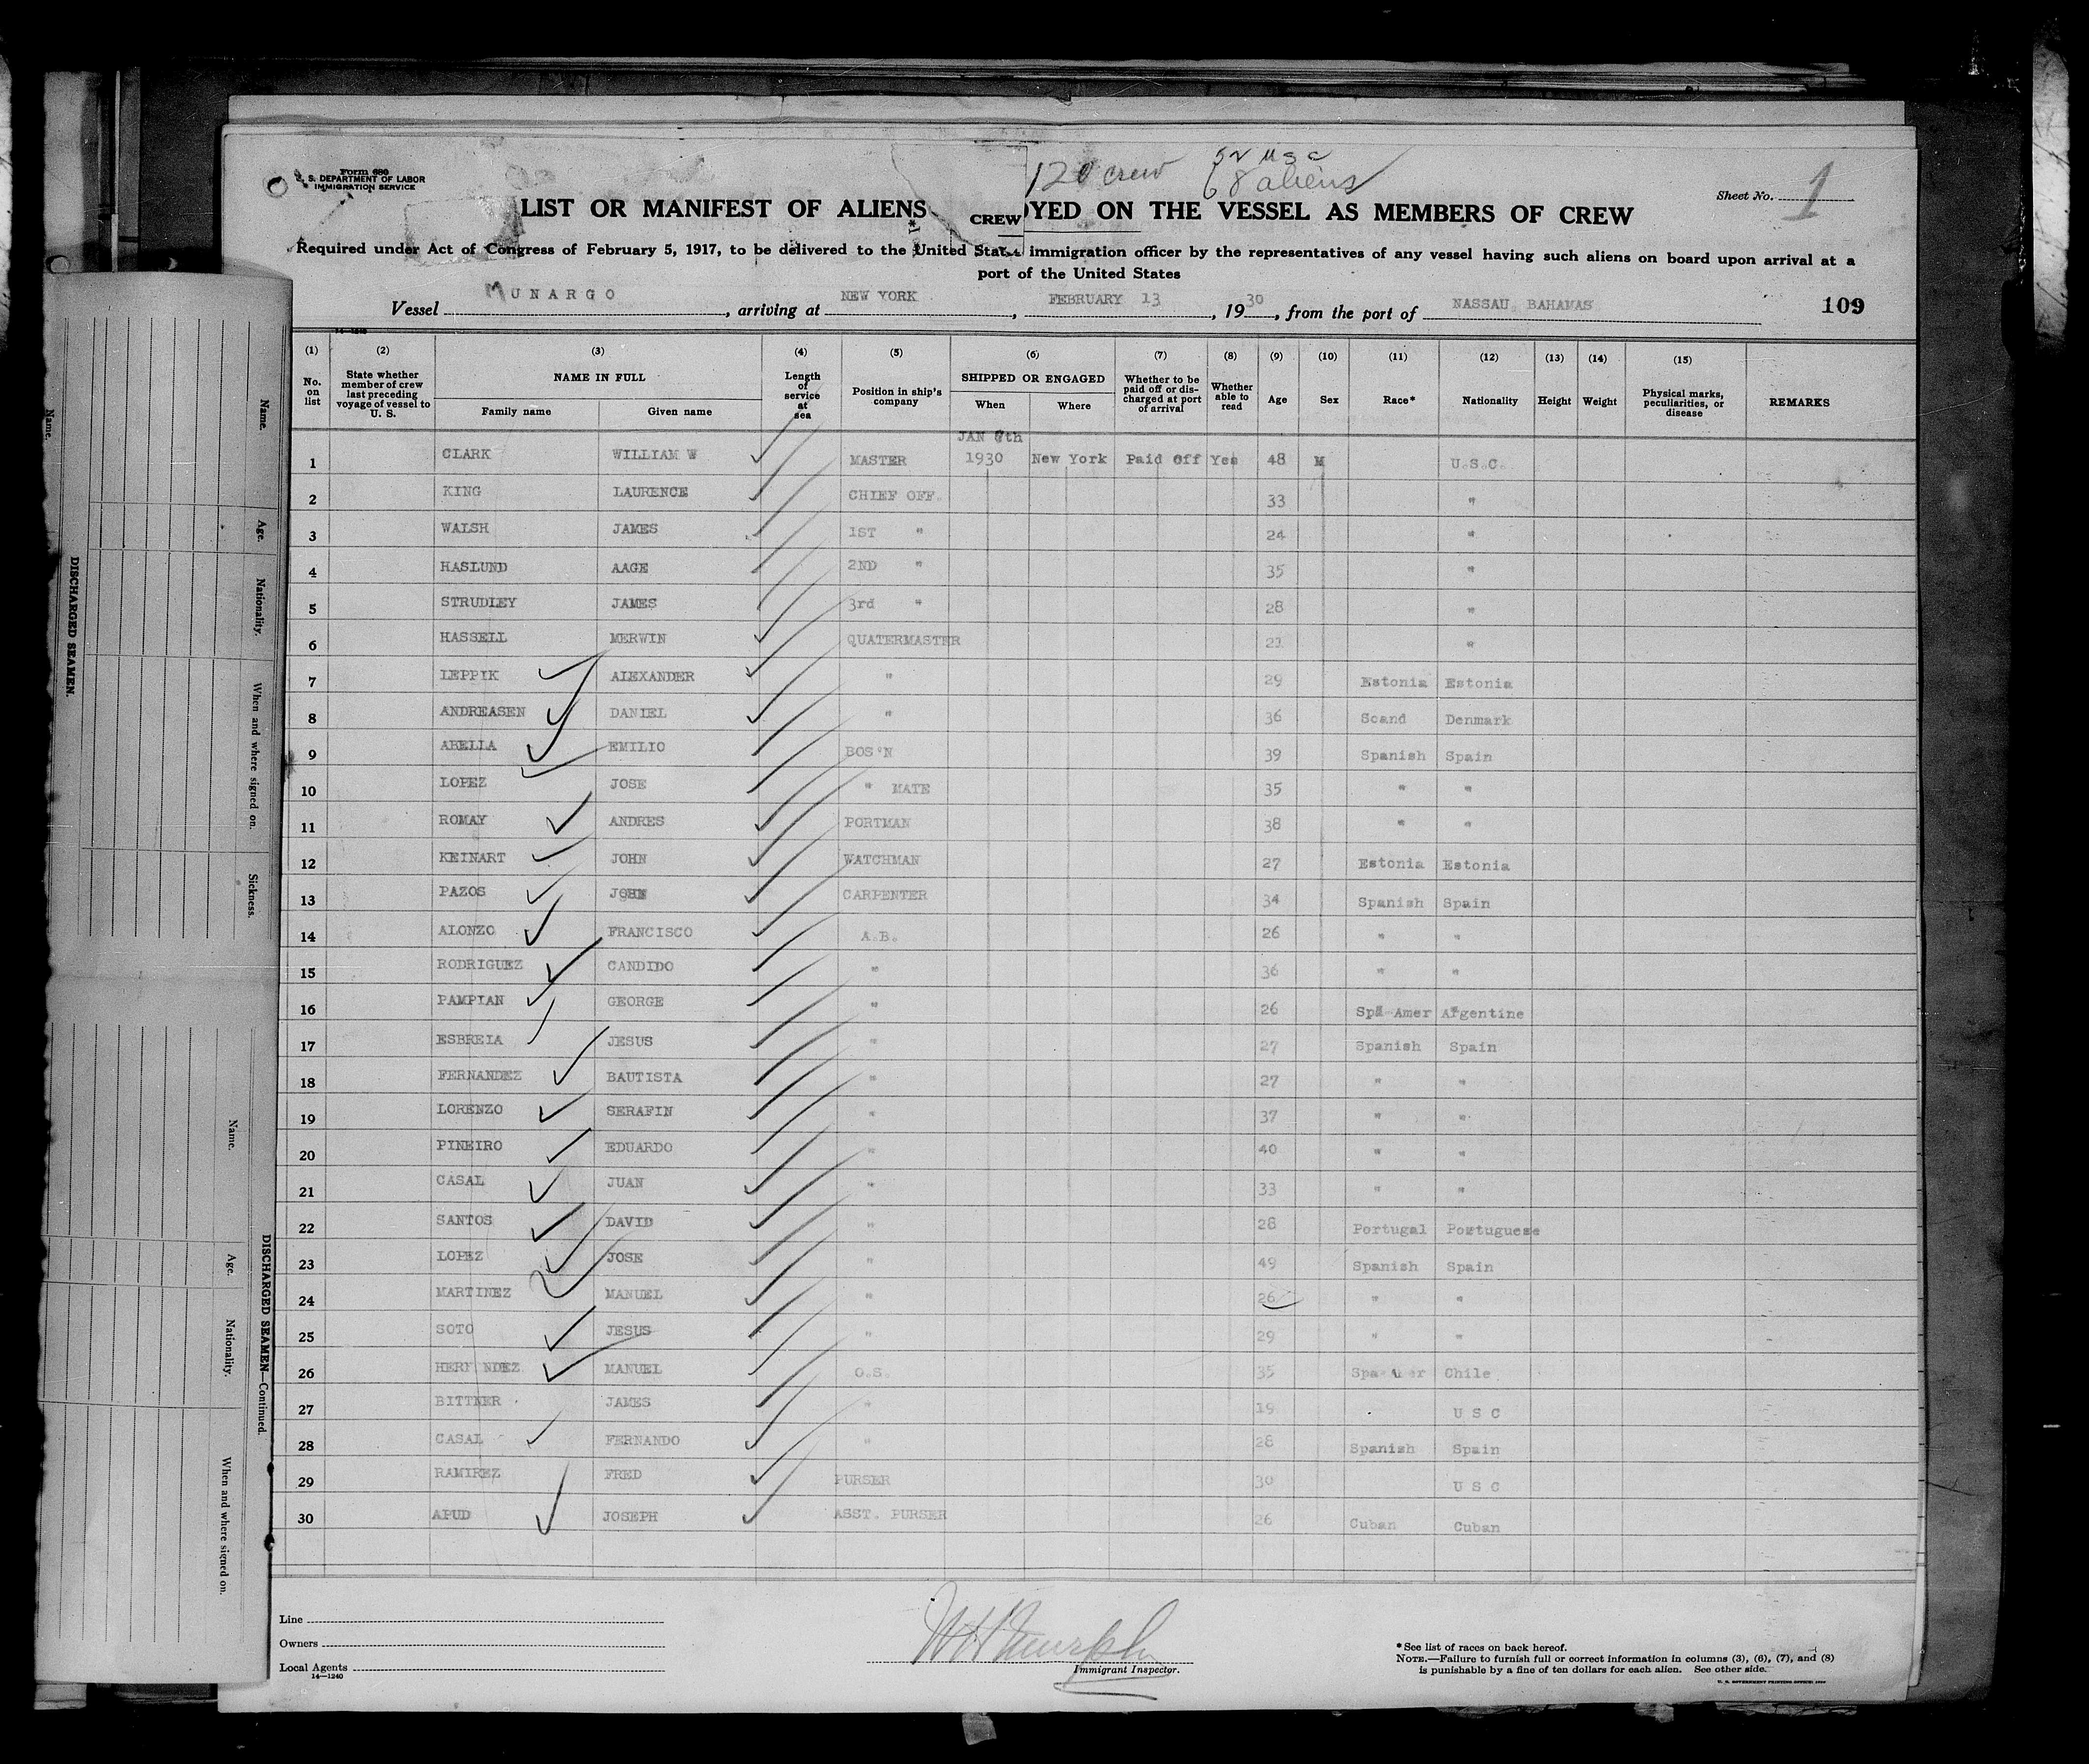 Form 680
S. DEPARTMENT OF LABOR
IMMIGRATION SERVICE
120 crew
52 USC
68 aliens
Sheet No. 1
LIST OR MANIFEST OF ALIENS CREW OYED ON THE VESSEL AS MEMBERS OF CREW
Required under Act of Congress of February 5, 1917, to be delivered to the United States immigration officer by the representatives of any vessel having such aliens on board upon arrival at a
port of the United States
Vessel MUNARGO, arriving at NEW YORK, FEBRUARY 13, 1930, from the port of NASSAU, BAHAMAS
109
14-1240
(1) (2) (3) (4) (5) (6) (7) (8) (9) (10) (11) (12) (13) (14) (15)
No. on list
State whether member of crew last preceding voyage of vessel to U. S.
NAME IN FULL
Family name
Given name
Length of service at sea
Position in ship's company
SHIPPED OR ENGAGED
When
Where
Whether to be paid off or discharged at port of arrival
Whether able to read
Age
Sex
Race*
Nationality
Height
Weight
Physical marks, peculiarities, or disease
REMARKS
1 CLARK WILLIAM W MASTER JAN 8th 1930 New York Paid Off Yes 48 M U.S.C.
2 KING LAURENCE CHIEF OFF. 33 "
3 WALSH JAMES 1ST " 24 "
4 HASLUND AAGE 2ND " 35 "
5 STRUDLEY JAMES 3rd " 28 "
6 HASSELL MERWIN QUATERMASTER 23 "
7 LEPPIK ALEXANDER " 29 Estonia Estonia
8 ANDREASEN DANIEL " 36 Scand Denmark
9 ABELLA EMILIO BOS'N 39 Spanish Spain
10 LOPEZ JOSE " MATE 35 " "
11 ROMAY ANDRES PORTMAN 38 " "
12 KEINART JOHN WATCHMAN 27 Estonia Estonia
13 PAZOS JOHN CARPENTER 34 Spanish Spain
14 ALONZO FRANCISCO A.B. 26 " "
15 RODRIGUEZ CANDIDO " 36 " "
16 PAMPIAN GEORGE " 26 Spa-Amer Argentine
17 ESBREIA JESUS " 27 Spanish Spain
18 FERNANDEZ BAUTISTA " 27 " "
19 LORENZO SERAFIN " 37 " "
20 PINEIRO EDUARDO " 40 " "
21 CASAL JUAN " 33 " "
22 SANTOS DAVID " 28 Portugal Portuguese
23 LOPEZ JOSE " 49 Spanish Spain
24 MARTINEZ MANUEL " 26 " "
25 SOTO JESUS " 29 " "
26 HERNANDEZ MANUEL O.S. 35 Spa-Amer Chile
27 BITTNER JAMES " 19 U S C
28 CASAL FERNANDO " 28 Spanish Spain
29 RAMIREZ FRED PURSER 30 U S C
30 APUD JOSEPH ASST. PURSER 26 Cuban Cuban
Line
Owners
Local Agents
14-1240
Immigrant Inspector.
*See list of races on back hereof.
NOTE.—Failure to furnish full or correct information in columns (3), (6), (7), and (8)
is punishable by a fine of ten dollars for each alien. See other side.
U. S. GOVERNMENT PRINTING OFFICE:
Name.
DISCHARGED SEAMEN.
Name.
Age.
Nationality.
When and where signed on.
Sickness.
DISCHARGED SEAMEN—Continued.
Name.
Age.
Nationality.
When and where signed on.